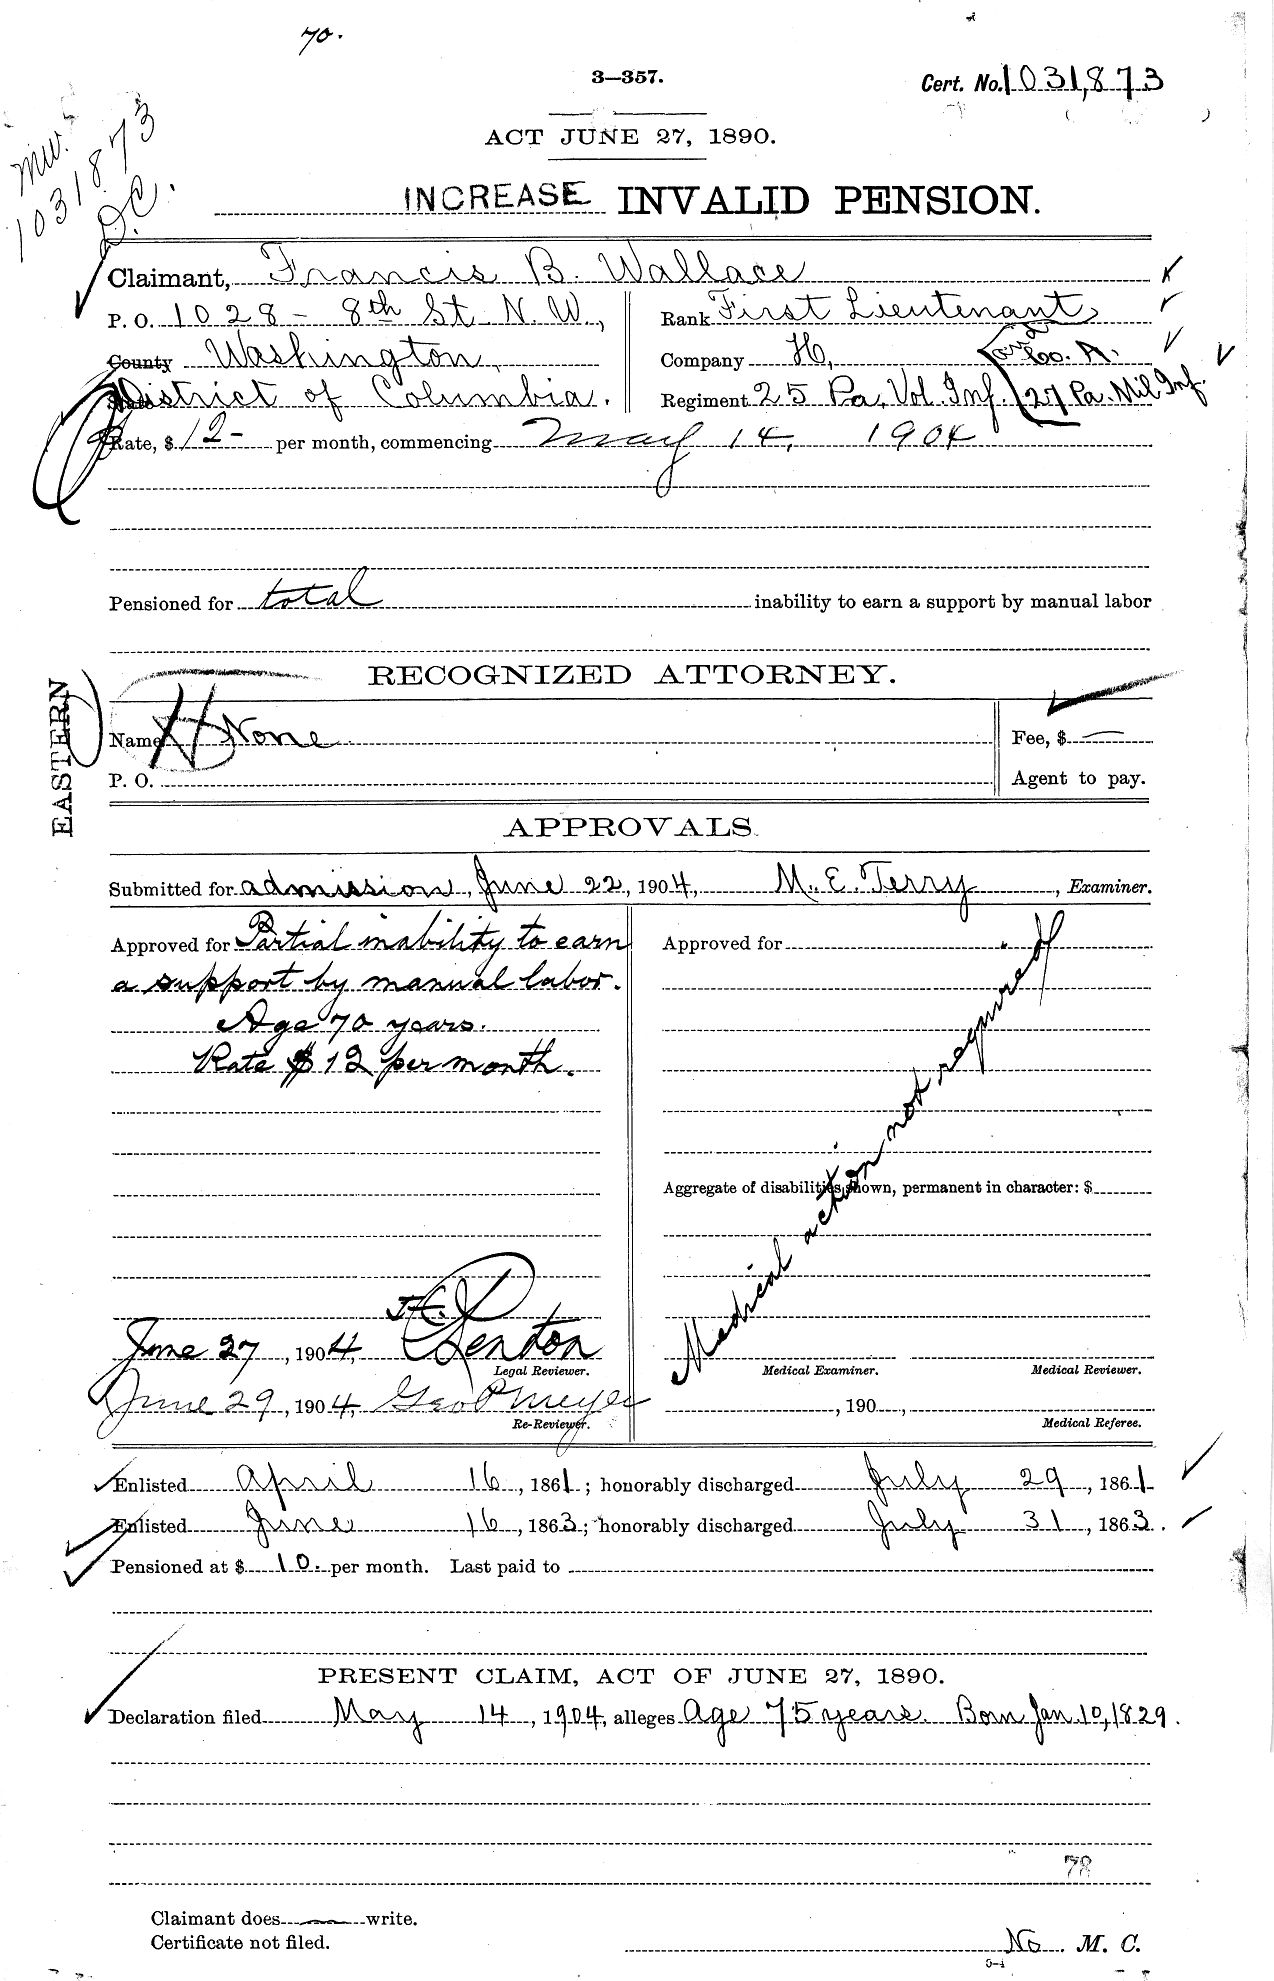 70.
3—357.
Cert. No. 1031,873
mw.
1031873
D.C.
ACT JUNE 27, 1890.
INCREASE INVALID PENSION.
Claimant, Francis B. Wallace
P. O. 1028 - 8th St. N. W.,
Rank First Lieutenant
County Washington,
Company H, and Co. A.
State District of Columbia.
Regiment 25 Pa. Vol. Inf. 27 Pa. Mil Inf.
Rate, $ 12- per month, commencing May 14, 1904
Pensioned for total inability to earn a support by manual labor
EASTERN
RECOGNIZED ATTORNEY.
Name None
Fee, $ —
P. O.
Agent to pay.
APPROVALS.
Submitted for admission, June 22, 1904, M. E. Terry, Examiner.
Approved for Partial inability to earn
a support by manual labor.
Age 70 years.
Rate $12 per month.
Approved for
Medical action not required
Aggregate of disabilities shown, permanent in character: $
June 27, 1904, Fenton
Legal Reviewer.
Medical Examiner. Medical Reviewer.
June 29, 1904, Geo P Meyer
Re-Reviewer.
, 190 ,
Medical Referee.
Enlisted April 16, 1861; honorably discharged July 29, 1861
Enlisted June 16, 1863; honorably discharged July 31, 1863.
Pensioned at $ 10. per month. Last paid to
PRESENT CLAIM, ACT OF JUNE 27, 1890.
Declaration filed May 14, 1904, alleges Age 75 years. Born Jan. 10, 1829.
78
Claimant does — write.
Certificate not filed.
No M. C.